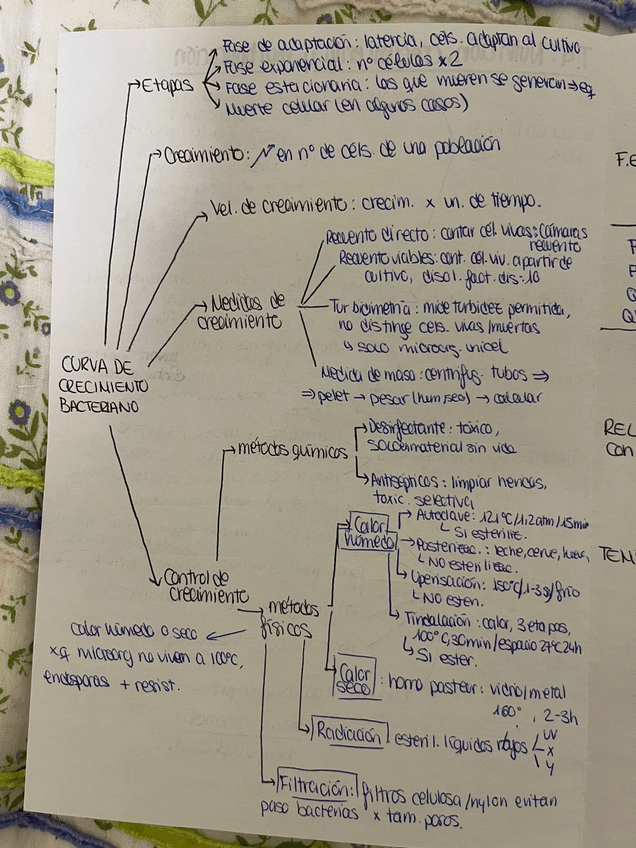 Fase de adaptación: latencia, cels. adaptan al cultivo
Fase exponencial: nº células x2
Etapas
Fase estacionaria: las que mueren se generan => eq
Muerte celular (en algunos casos)
Crecimiento: en nº de céls. de una población
F.E
Vel. de crecimiento: crecim. x un. de tiempo.
Recuento directo: contar cél. vivas: Cámaras
recuento
Recuento viables: cont. cel. viv. a partir de
cultivo, disol. fact. dis=10
Medidas de
crecimiento
Turbidimetría: mide turbidez permitida,
no distinge cels. vivas/muertas
↳ solo microorg. unicel
Medida de masa: centrifug. tubos =>
=> pelet → pesar (hum/seo) → calcular
CURVA DE
CRECIMIENTO
BACTERIANO
métodos químicos
Desinfectante: tóxico,
material sin vida
Antisépticos: limpiar heridas,
toxic. selectiva
REL
con
Calor
húmedo
Autoclave: 121ºC/1,2atm/15min
↳ Si esterilit.
: leche, cerve,
↳ NO esterilizac.
TEN
: 150ºC/1-3s/frío
↳ NO esten.
Tindalación: calor, 3 etapas,
100ºC, 30min/espacio 27ºC 24h
↳ Si ester.
Control de
crecimiento
métodos
físicos
calor húmedo o seco
xq microorg no viven a 100ºC,
endosporas + resist.
Calor
seco
: horno pasteur: vidrio/metal
160º, 2-3h
Radiación
esteril. líquidos rayos
UV
X
γ
Filtración: filtros celulosa/nylon evitan
paso bacterias x tam. poros.